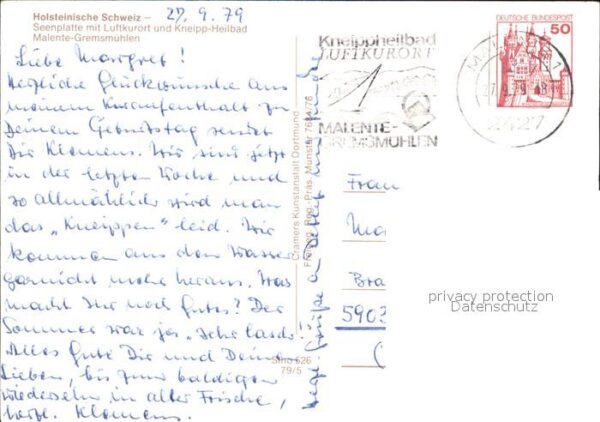 Holsteinische Schweiz –
Seenplatte mit Luftkurort und Kneipp-Heilbad
Malente-Gremsmühlen
27.9.79
Liebe Margret!
Herzliche Glückwünsche aus
meinem Kuraufenthalt zu
Deinem Geburtstag sendet
Dir Klemens. Wir sind jetzt
in der letzten Woche und
so allmählich wird man
das "Kneippen" leid. Wir
kommen aus dem Wasser
garnicht mehr heraus. Was
macht Ihr noch Gutes? Der
Sommer war ja "sehr
Alles Gute Dir und Deinen
Lieben, bis zum baldigen
Wiedersehn in alter Frische,
herzl. Klemens.
Herzl. Grüße a
Cramers Kunstanstalt Dortmund
Freigeg. Reg.-Präs. Münster
Smo 626
79/5
Kneippheilbad
LUFTKURORT
MALENTE-
GREMSMÜHLEN
2427
DEUTSCHE BUNDESPOST
50
Frau
Ma
Bra
5903
privacy protection
Datenschutz